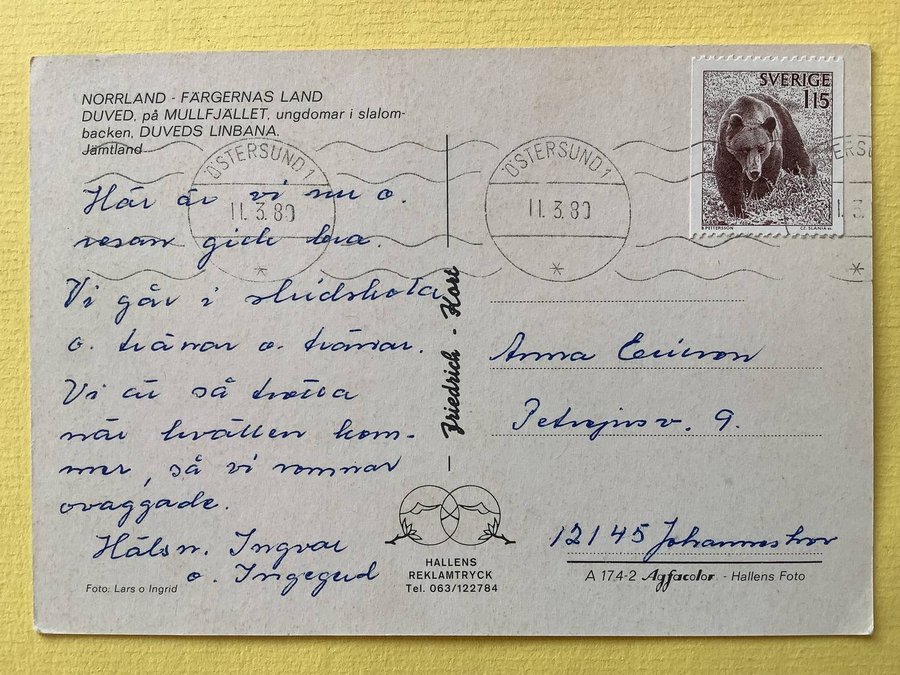 NORRLAND - FÄRGERNAS LAND
DUVED, på MULLFJÄLLET, ungdomar i slalom-
backen, DUVEDS LINBANA.
Jämtland
Här är vi nu o.
resan gick bra.
Vi går i skidskola
o. tränar o. tränar.
Vi är så trötta
när kvällen kom-
mer, så vi somnar
ovaggade.
Hälsn. Ingvar
o. Ingegerd
Foto: Lars o Ingrid
Friedrich - Kort
HALLENS
REKLAMTRYCK
Tel. 063/122784
ÖSTERSUND 1
11.3.80
ÖSTERSUND 1
11.3.80
SVERIGE
115
B. PETTERSSON
CZ. SLANIA sc.
ERSU
1.3
Anna Ericson
Petrejusv. 9.
12145 Johanneshov
A 174-2 Agfacolor - Hallens Foto